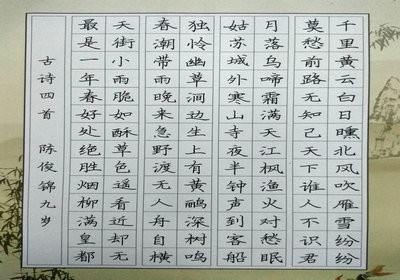 千里黄云白日曛北风吹雁雪纷纷
莫愁前路无知己天下谁人不识君
月落乌啼霜满天江枫渔火对愁眠
姑苏城外寒山寺夜半钟声到客船
独怜幽草涧边生上有黄鹂深树鸣
春潮带雨晚来急野渡无人舟自横
天街小雨脆如酥草色遥看近却无
最是一年春好处绝胜烟柳满皇都
古诗四首 陈俊锦九岁